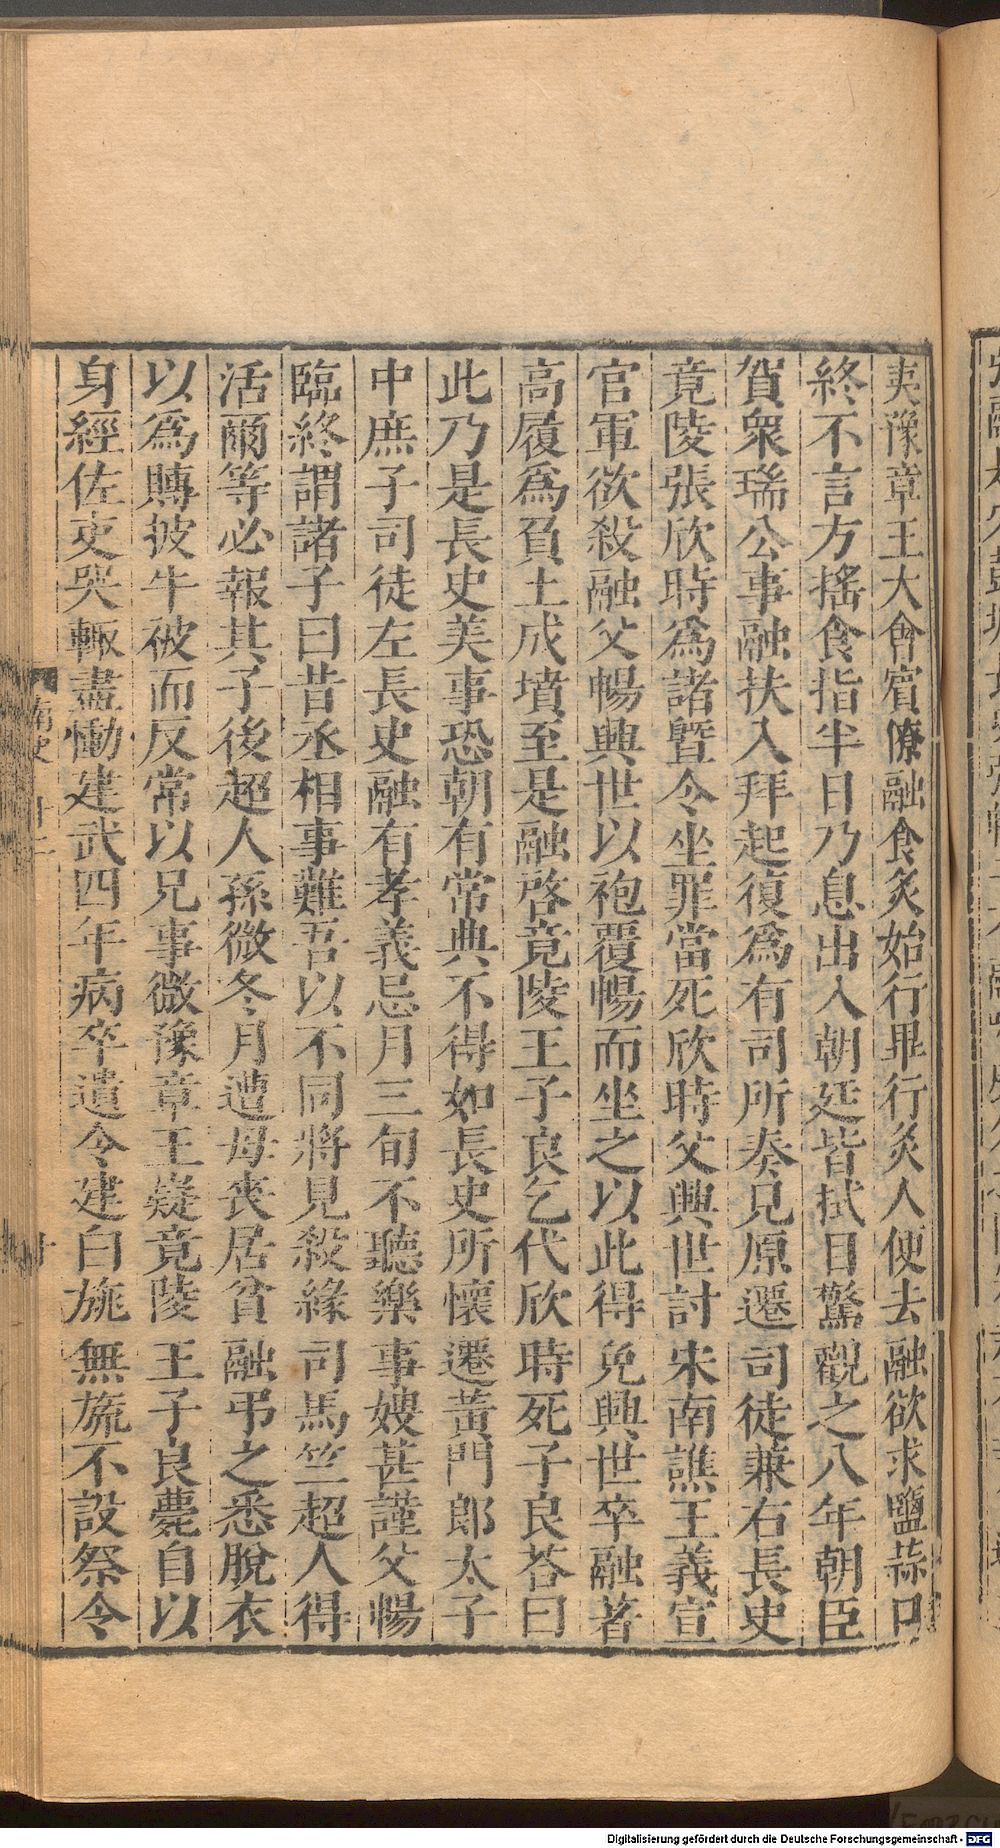 夷豫章王大會賓僚融食炙始行畢行炙人便去融欲求鹽蒜口
終不言方搖食指半日乃息出入朝廷皆拭目驚觀之八年朝臣
賀衆瑞公事融扶入拜起復爲有司所奏見原遷司徒兼右長史
竟陵張欣時爲諸曁令坐罪當死欣時父興世討宋南譙王義宣
官軍欲殺融父暢興世以袍覆暢而坐之以此得免興世卒融著
高履爲負土成墳至是融啓竟陵王子良乞代欣時死子良荅曰
此乃是長史美事恐朝有常典不得如長史所懷遷黃門郎太子
中庶子司徒左長史融有孝義忌月三旬不聽樂事嫂甚謹父暢
臨終謂諸子曰昔丞相事難吾以不同將見殺緣司馬竺超人得
活爾等必報其子後超人孫微冬月遭母喪居貧融弔之悉脫衣
以爲賻披牛被而反常以兄事微豫章王嶷竟陵王子良薨自以
身經佐吏哭輒盡慟建武四年病卒遺令建白旐無旒不設祭令
南史
Digitalisierung gefördert durch die Deutsche Forschungsgemeinschaft - DFG